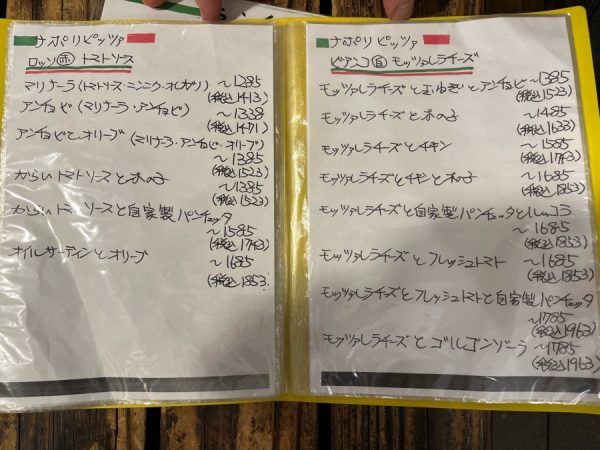 ナポリピッツァ
ロッソ 赤 トマトソース
マリナーラ(トマトソース・ニンニク・オレガノ) ~1285
(税込1413)
アンチョビ(マリナーラ・アンチョビ) ~1338
(税込1471)
アンチョビとオリーブ(マリナーラ・アンチョビ・オリーブ)
~1385
(税込1523)
からいトマトソースときの子 ~1385
(税込1523)
からいト ソースと自家製パンチェッタ
~1585
(税込1743)
オイルサーディンとオリーブ ~1685
(税込1853)
ナポリピッツァ
ビアンコ 白 モッツァレラチーズ
モッツァレラチーズと玉ねぎとアンチョビ ~1385
(税込1523)
モッツァレラチーズときの子 ~1485
(税込1633)
モッツァレラチーズとチキン ~1585
(税込1743)
モッツァレラチーズとチキンときの子 ~1685
(税込1853)
モッツァレラチーズと自家製パンチェッタとルッコラ
~1685
(税込1853)
モッツァレラチーズとフレッシュトマト ~1685
(税込1853)
モッツァレラチーズとフレッシュトマトと自家製パンチェッタ
~1785
(税込1963)
モッツァレラチーズとゴルゴンゾーラ ~1785
(税込1963)